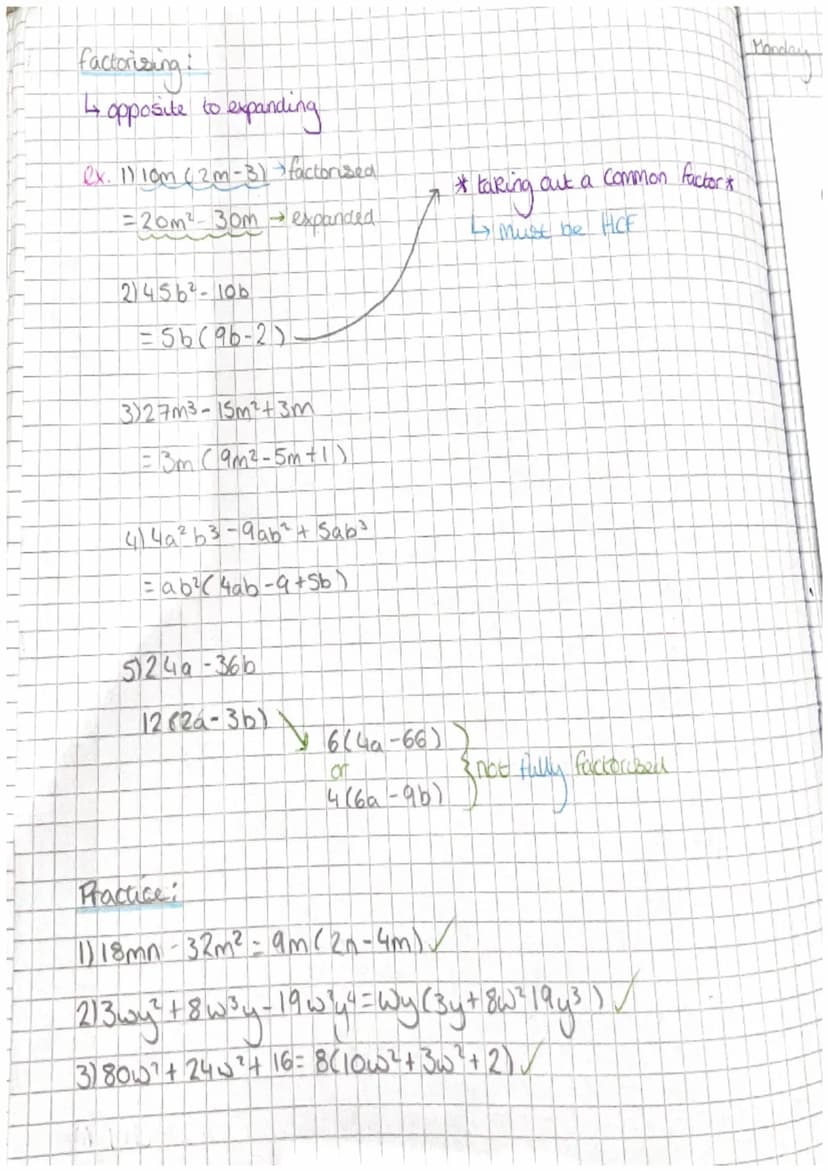 Monday
factorising:
↳ opposite to expanding
ex. 1) 10m (2m-3) → factorised
= 20m² - 30m → expanded
* taking out a common factor *
↳ must be HCF
2) 45b² - 10b
= 5b(9b-2)
3) 27m³ - 15m² + 3m
= 3m (9m²-5m+1)
4) 4a²b³ - 9ab² + 5ab³
= ab²(4ab-9+5b)
5) 24a - 36b
12(2a-3b)
6(4a-6b)
or
4(6a-9b)
not fully factorised
Practice:
1) 18mn - 32m² = 9m(2n-4m) ✓
2) 3wy² + 8w³y - 19w²y⁴ = wy(3y+8w²19y³) ✓
3) 80w² + 24w² + 16 = 8(10w²+3w²+2) ✓